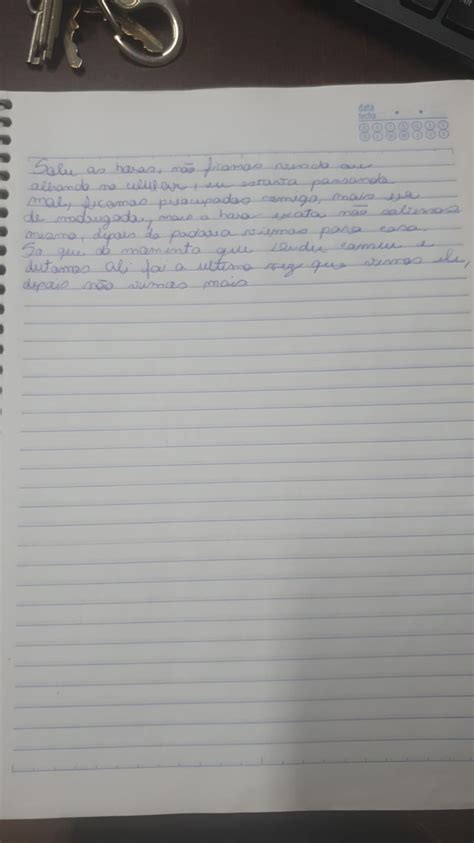 data
fecha
Sobre as horas, não ficamos vendo ou
olhando no celular, eu estava passando
mal, ficamos preocupados comigo, mais era
de madrugada, mais a hora exata não sabemos
mesmo, depois da padaria viemos para casa.
So que do momento que comeu e
deitamos ali foi a ultima vez que vimos ele,
depois não vimos mais